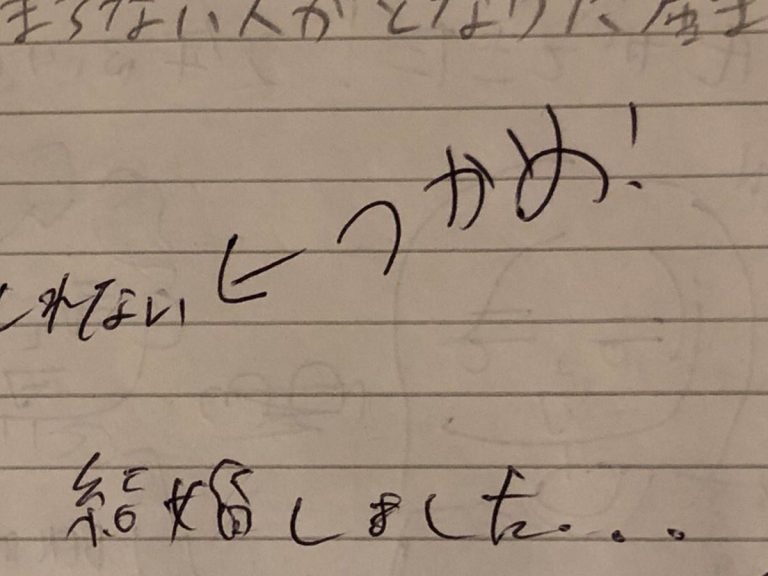 まらない人がとなりに居ま
ヒつかめ!
しれない
結婚しました...